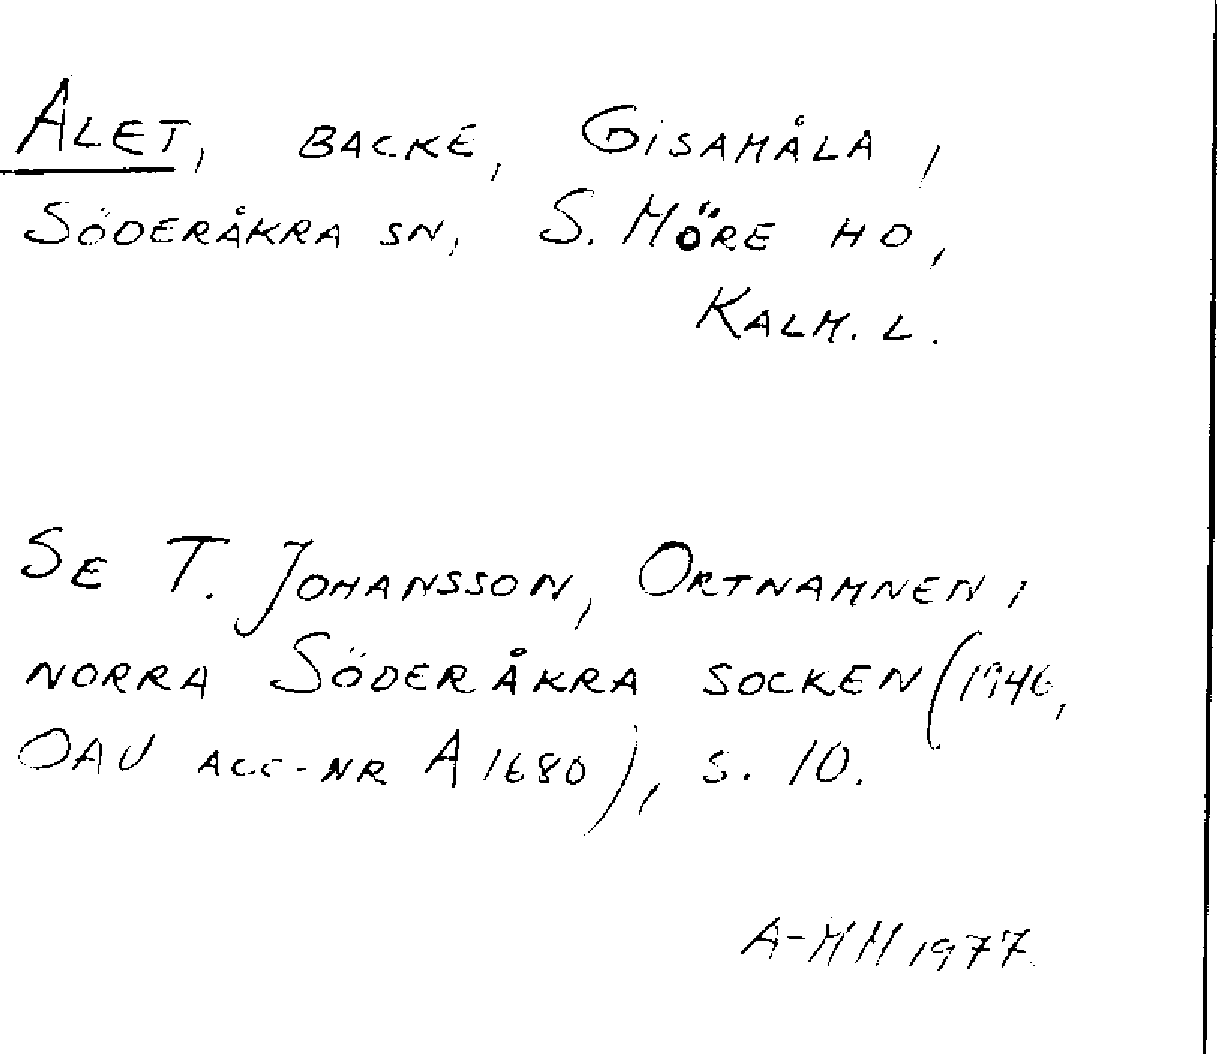 Alet, backe, Gisamåla,
Söderåkra sn, S. Möre hd,
Kalm. l.
Se T. Johansson, Ortnamnen i
norra Söderåkra socken (1946,
OAU acc-nr A 1680), s. 10.
A-MM 1977